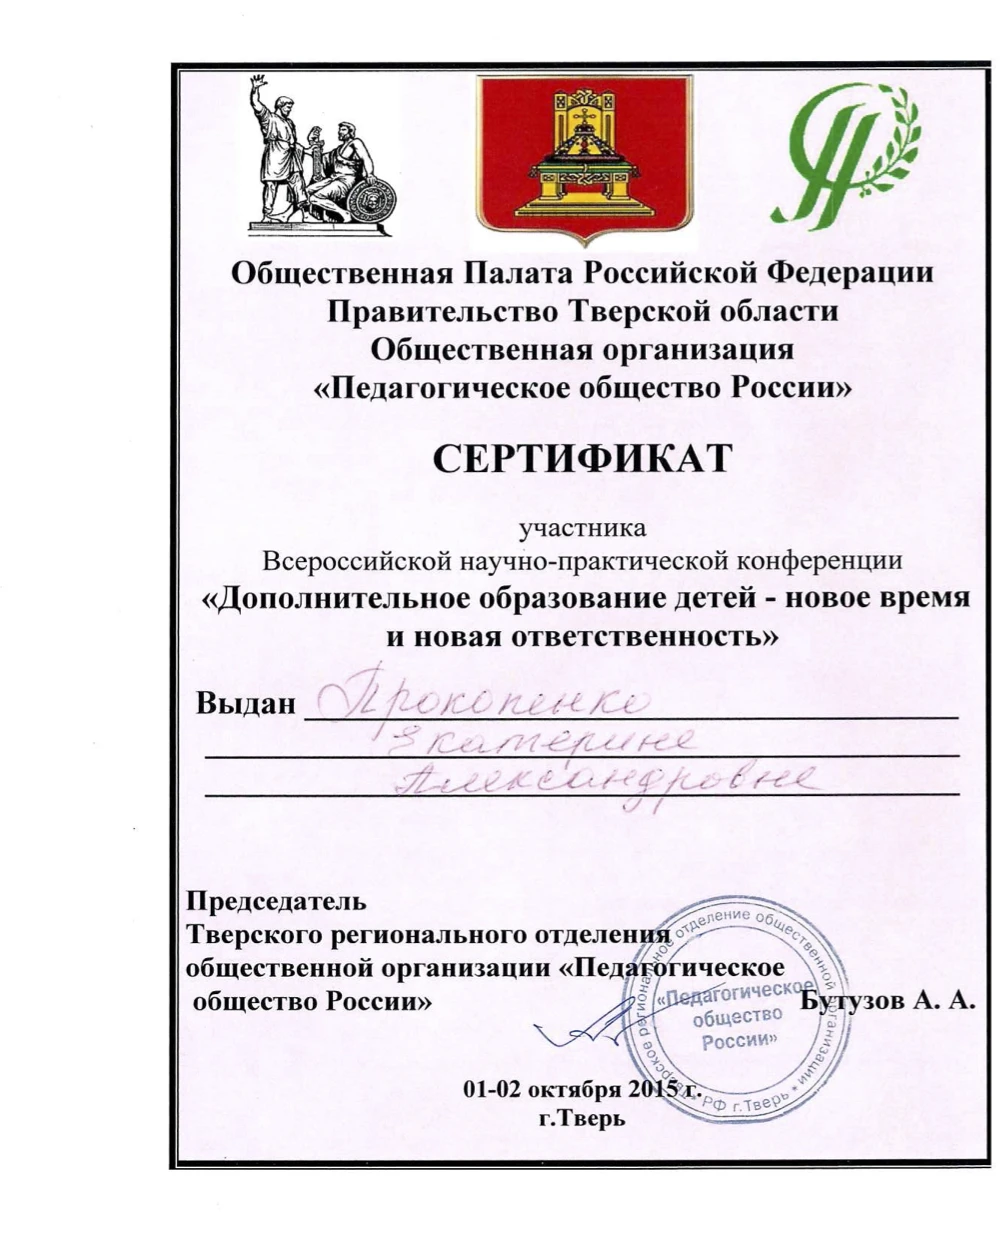 Общественная Палата Российской Федерации
Правительство Тверской области
Общественная организация
«Педагогическое общество России»
СЕРТИФИКАТ
участника
Всероссийской научно-практической конференции
«Дополнительное образование детей - новое время
и новая ответственность»
Выдан Прокопенко
Екатерине
Александровне
Председатель
Тверского регионального отделения
общественной организации «Педагогическое
общество России»
Бутузов А. А.
Тверское региональное отделение общественной организации * РФ г.Тверь *
«Педагогическое
общество
России»
01-02 октября 2015 г.
г.Тверь